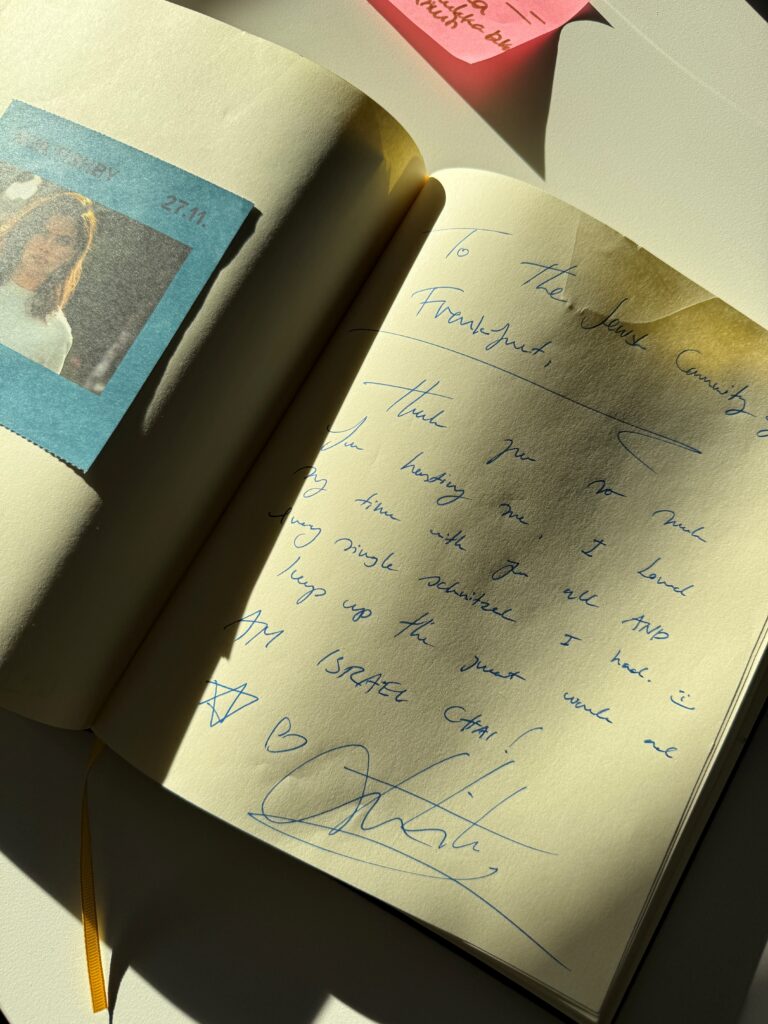 TISHBY
27.11.
To The Jewish Community of
Frankfurt,
Thank you so much
for hosting me. I loved
my time with you all AND
every single schnitzel I had. :)
keep up the great work
AM ISRAEL CHAI!